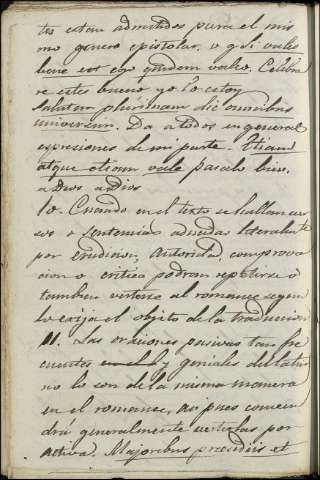 tes estan admitidos para el mis
mo genero epistolar. v. g. Si vales
bene est ego quidem valeo. Celebra
re estes bueno, yo lo estoy
Salutem plurimam dic omnibus
universim. Da a todos en general
expresiones de mi parte. Etiam
atque etiam vale pasalo bien.
a Dios a Dios
10. Cuando en el texto se hallan ver
sos o sentencias aducidas literalmte
por erudicion, Autoridad, comprova
cion o critica podran repetirse o
tambien verterse al romance segun
lo exija el objeto de la traduccion
11. Las oraciones pasivas tan fre
cuentes y geniales del latin
no lo son de la misma manera
en el romance, asi pues convein
drá generalmente vertirlas por
activa. Majoribus praediis et